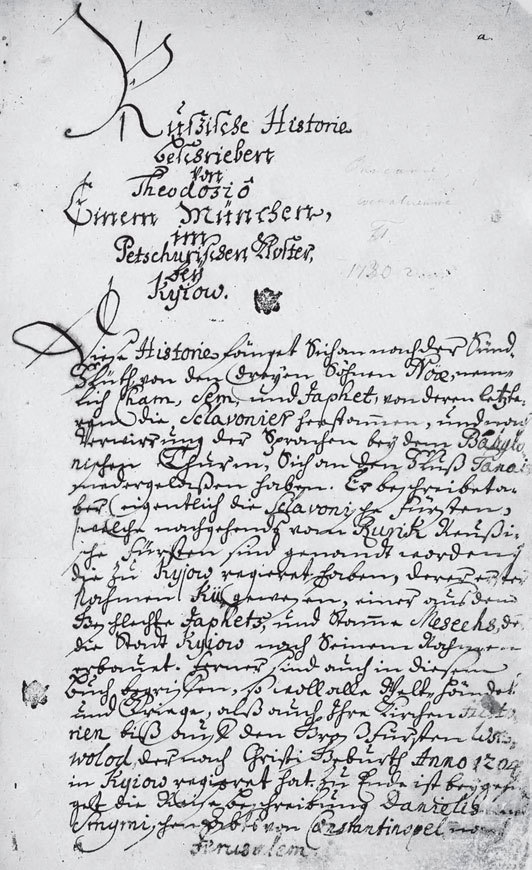 a.
Rußische Historie
beschrieben
von
Theodosiô
Einem München,
im
Petschurischen Kloster,
bey
Kyiow.
1730
Diese Historie fänget Sich an nach der Sünd
Fluth, von den dreyen Söhnen Noæ, nem-
lich Cham, Sem, und Japhet, von deren letzte-
rem die Sclavonier herstammen, und nach
Verwirrung der Sprachen bey dem Babylo-
nischen Thurm, Sich an den Fluß Tanais
niedergelaßen haben. Er beschreibet a-
ber eigentlich die Sclavonische Fürsten,
welche nachgehends vom Rurik Reußi-
sche Fürsten sind genandt worden,
die zu Kyiow regieret haben, derer erster
Nahmen Kii gewesen, einer aus dem
Geschlechte Japhets, und Stamme Mesechs, der
die Stadt Kyiow nach Seinem Nahmen
erbauet. Ferner sind auch in diesem
Buch begriffen, so woll alle Welt-Händel
und Kriege, alß auch Ihre Kirchen Histo-
rien biß auf den Groß Fürsten Wse-
wolod, der nach Christi Geburth Anno 1204
in Kyiow regieret hat. zu Ende ist beygefü-
get die Reise beschreibung Danielis
von Constantinopel nach
Jerusalem.